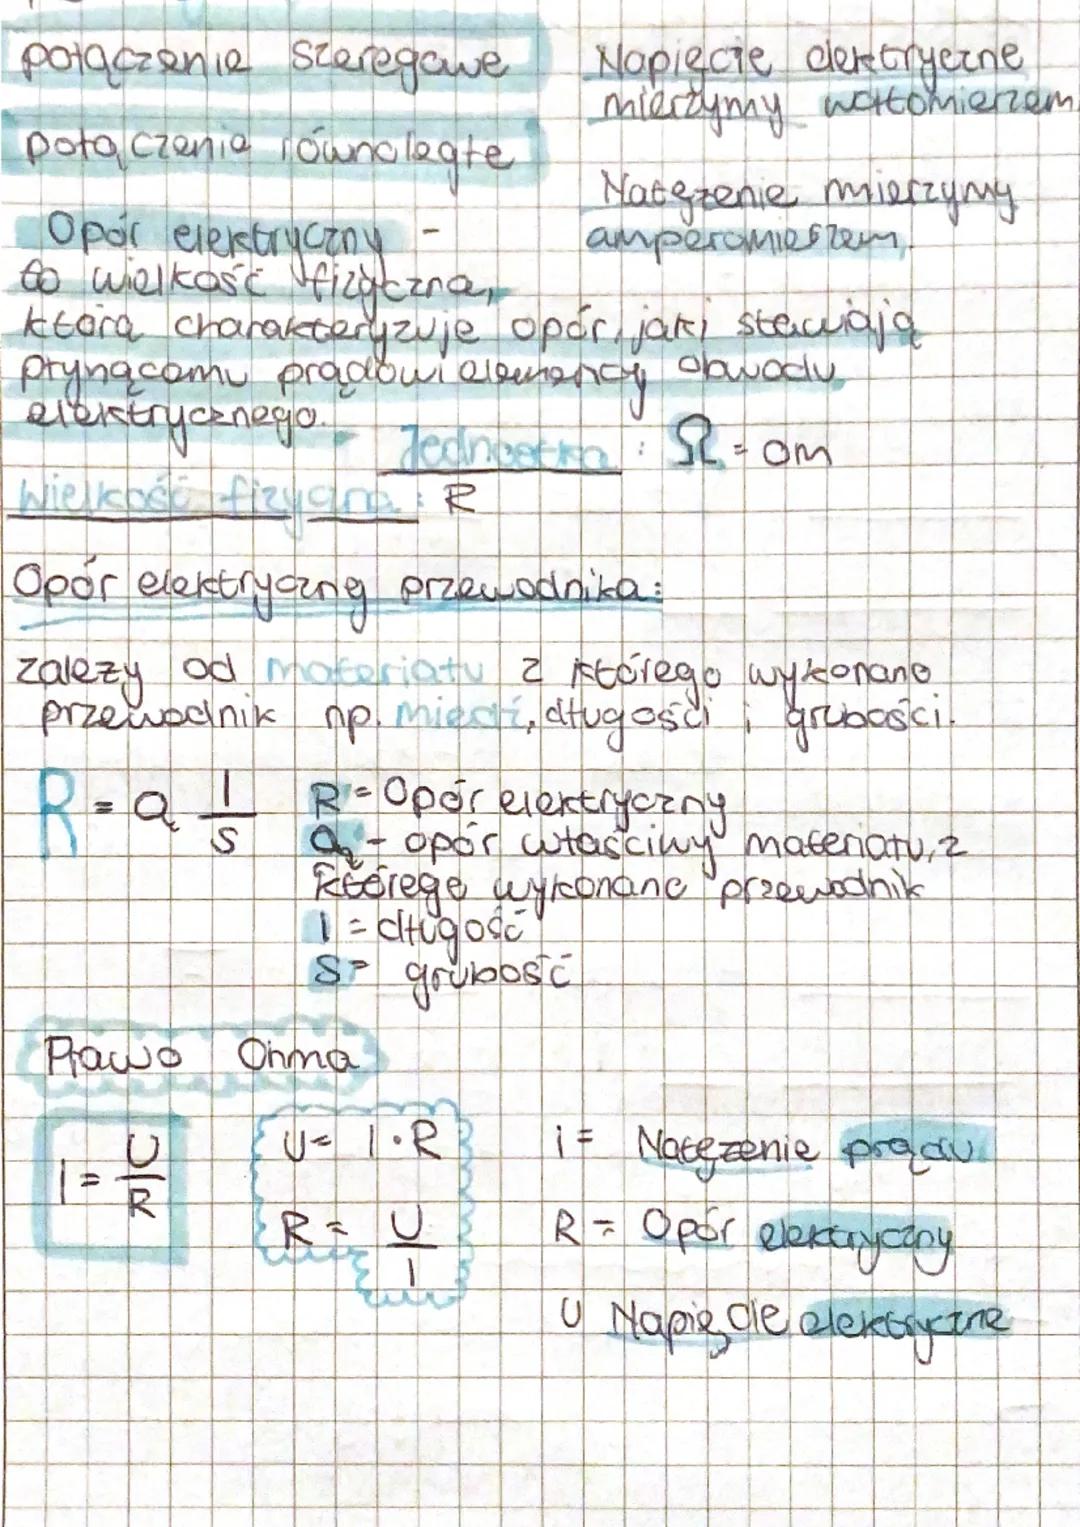 połączenie szeregowe
połączenia równoległe
Napięcie elektryczne
mierzymy woltomierzem.
Natężenie mierzymy
amperomierzem.
Opór elektryczny -
to wielkość fizyczna,
która charakteryzuje opór, jaki stawiają
płynącemu prądowi elementy obwodu
elektrycznego.
Jednostka : Ω = om
Wielkość fizyczna : R
Opór elektryczny przewodnika:
zależy od materiału z którego wykonano
przewodnik np. miedź, długości i grubości.
R = ϱ l/S
R = Opór elektryczny
ϱ - opór właściwy materiału, z
którego wykonano przewodnik
l = długość
S = grubość
Prawo Ohma
I = U/R
U = I · R
R = U/I
i = Natężenie prądu
R = Opór elektryczny
U Napięcie elektryczne